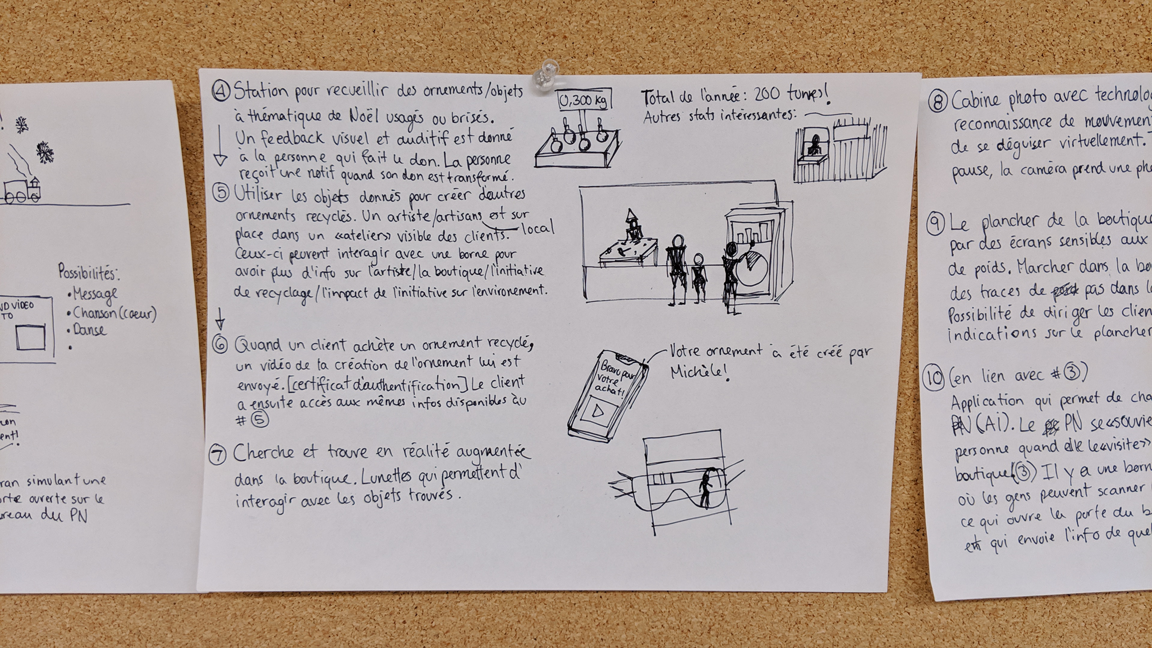 Possibilités:
• Message
• Chanson (coeur)
• Danse
•
ND VIDEO
TO
ran simulant une
orte ouverte sur le
reau du PN
④ Station pour recueillir des ornements/objets
à thématique de Noël usagés ou brisés.
Un feedback visuel et auditif est donné
à la personne qui fait le don. La personne
reçoit une notif quand son don est transformé.
0,300 kg
Total de l'année: 200 tunes!
Autres stats intéressantes:
⑤ Utiliser les objets donnés pour créer d'autres
ornements recyclés. Un artiste/artisans est sur
place dans un «atelier» visible des clients.
local
Ceux-ci peuvent interagir avec une borne pour
avoir plus d'info sur l'artiste/la boutique/l'initiative
de recyclage/l'impact de l'initiative sur l'environement.
⑥ Quand un client achète un ornement recyclé,
un vidéo de la création de l'ornement lui est
envoyé. [certificat d'authentification] Le client
a ensuite accès aux mêmes infos disponibles au
# ⑤
Bravo pour
votre
achat!
Votre ornement a été créé par
Michèle!
⑦ Cherche et trouve en réalité augmentée
dans la boutique. Lunettes qui permettent d'
interagir avec les objets trouvés.
⑧ Cabine photo avec technolog
reconnaissance de mouvemen
de se déguiser virtuellement.
pause, la caméra prend une pho
⑨ Le plancher de la boutique
par des écrans sensibles aux
de poids. Marcher dans la bo
des traces de pas dans la
Possibilité de diriger les clien
indications sur le plancher
⑩ (en lien avec # ③)
Application qui permet de cha
PN (Ai). Le PN se «souvie
personne quand elle le «visite»
boutique (③) Il y a une born
où les gens peuvent scanner
ce qui ouvre la porte du b
et qui envoie l'info de quel